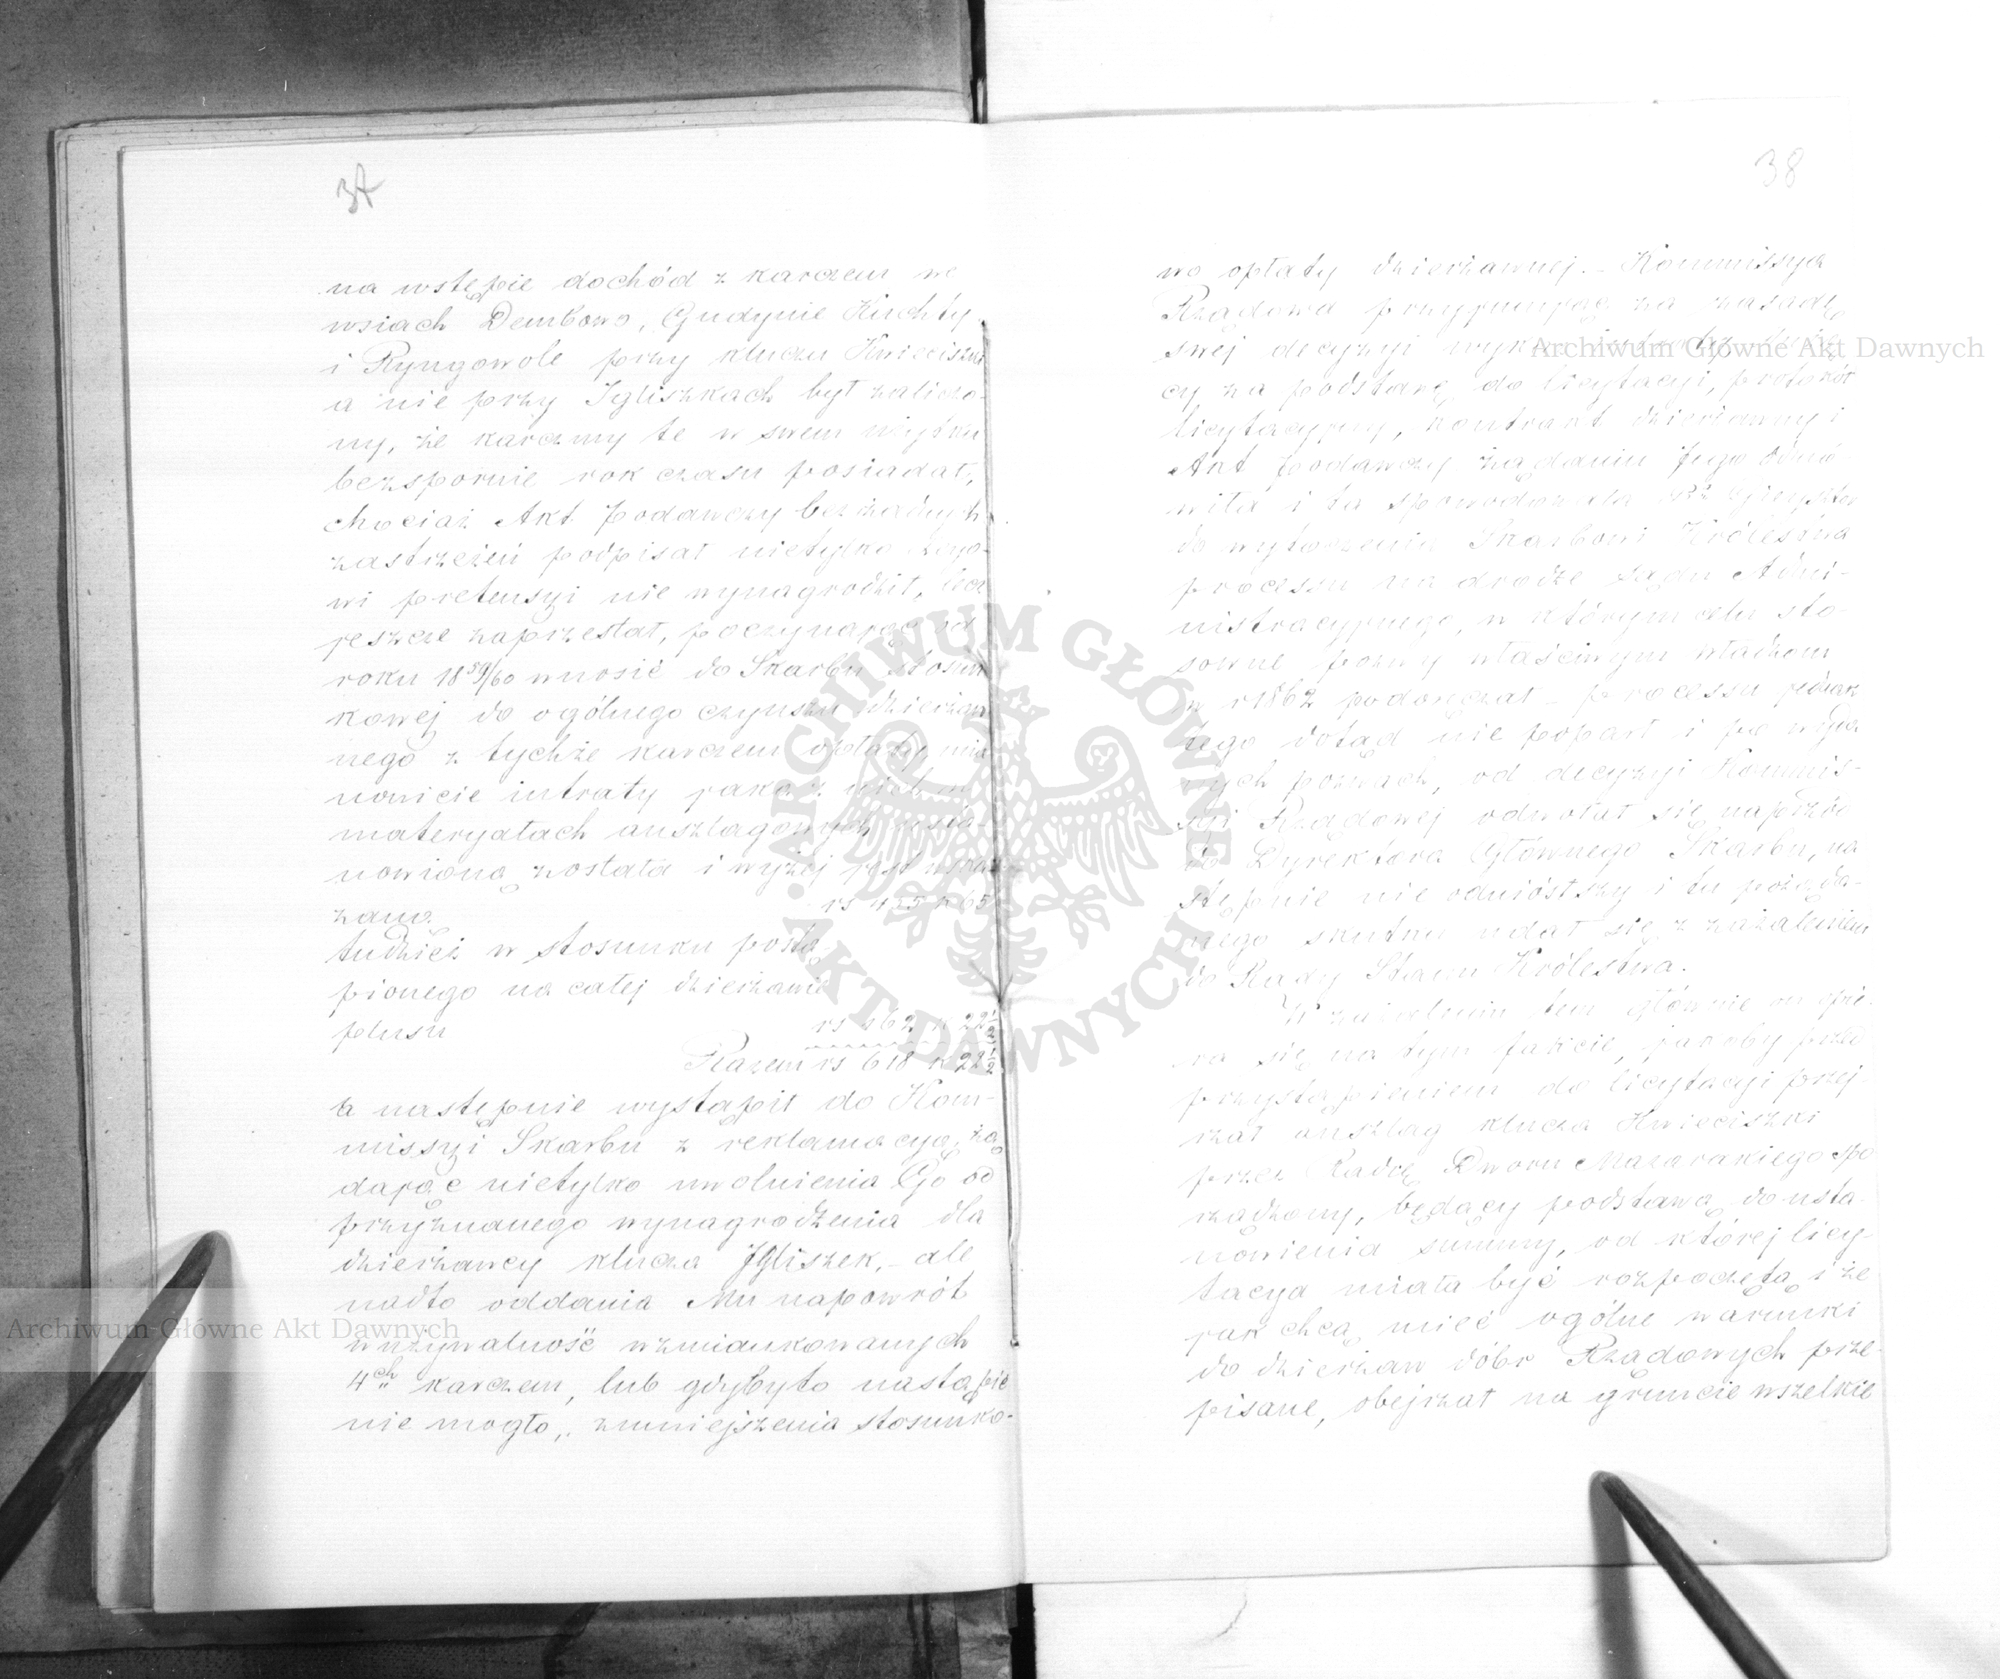 37
na wstępie dochód z karczem we
wsiach Dembowo, Gudynie Kirchty
i Ryngowole przy kluczu Kwieciszki
a nie przy Igliszkach był zaliczo-
ny, że karczmy te w swem użytku
bezspornie rok czasu posiadał,
chociaż Akt podawczy bez żadnych
zastrzeżeń podpisał nietylko
wi pretensyi nie wynagrodził, lecz
jeszcze zaprzestał, poczynając od
roku 18 59/60 wnosić do Skarbu stosun
kowej do ogólnego czynszu dzierżaw
nego z tychże karczem opłaty mia
nowicie intraty jaka z nich w
materyałach anszlagowych usta-
nowioną została i wyżej jest wska
zaną rs 455 k 65
tudzież w stosunku postą-
pionego na całej dzierżawie
plusu rs 162 k 22½
Razem rs 618 k 22½
a następnie wystąpił do Kom-
missyi Skarbu z reklamacyą, żą
dając nietylko uwolnienia Go od
przyznanego wynagrodzenia dla
dzierżawcy klucza Igliszek, - ale
nadto oddania Mu napowrót
w używalność wzmiankowanych
4ch karczem, lub gdyby to nastąpić
nie mogło, zmniejszenia stosunko-
38
wo opłaty dzierżawnej. - Kommissya
Rządowa przyjmując za zasadę
swej decyzyi
cy za podstawę do licytacyi, protokół
licytacyjny, kontrakt dzierżawny i
Akt podawczy żądaniu Jego odmó-
wiła i ta spowodowała
do wytoczenia Skarbowi Królestwa
processu na drodze sądu Admi-
nistracyjnego, w którym celu sto-
sowne pozwy właściwym władzom
w r 1862 podoręczał - processu jednak
tego dotąd nie poparł i po wyda
nych pozwach, od decyzyi Kommis-
syi Rządowej odwołał się naprzód
do Dyrektora Głównego Skarbu, na
stępnie nie odniósłszy i tu pożąda-
nego skutku udał się z zażaleniem
do Rady Stanu Królestwa.
W zażaleniu tem głównie opie-
ra się na tym fakcie, jakoby przed
przystąpieniem do licytacyi przej-
rzał anszlag klucza Kwieciszki
przez Radcę Dworu Mazarakiego spo
rządzony, będący podstawą do usta-
nowienia summy, od której licy-
tacya miała być rozpoczętą i że
jak chcą mieć ogólne warunki
do dzierżaw dóbr Rządowych prze-
pisane, obejrzał na gruncie wszelkie
Archiwum Główne Akt Dawnych
Archiwum Główne Akt Dawnych
ARCHIWUM GŁÓWNE AKT DAWNYCH